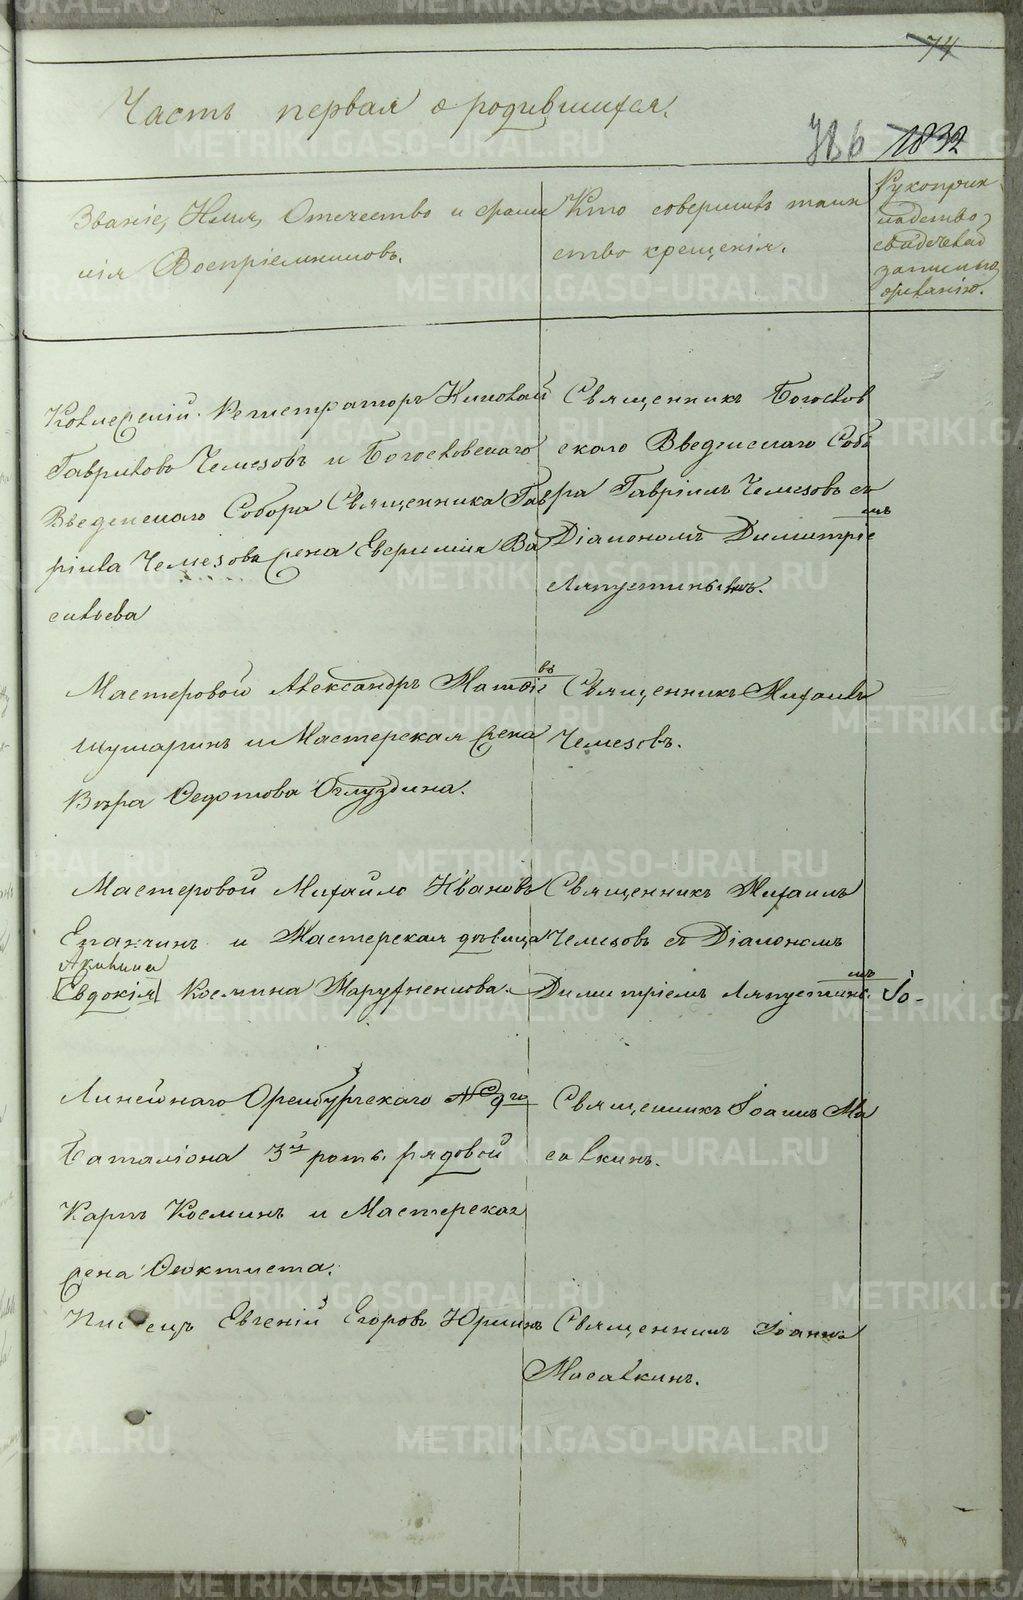 74
Часть первая о родившихся.
786 1832
Званіе, Имя, Отечество и фами
лія Воспріемниковъ.
Кто совершилъ таин
ство крещенія.
Рукоприк
ладство
свидѣтел
записью
Коллежскій Регистраторъ Николай
Гавриловъ Чемезовъ и Богословскаго
Введенскаго Собора Священника Гав
ріила Чемезова жена Евфимія Ва
сильева
Священникъ Богослов
скаго Введенскаго Собо
ра Гавріилъ Чемезовъ съ
Діакономъ Димитріе
мъ
Ляпустинымъ.
Мастеровой Александръ Матвѣе
въ
Шумаринъ и Мастерская жена
Вѣра Федотова Оглуздина.
Священникъ Михаилъ
Чемезовъ.
Мастеровой Михайло Ивановъ
Епанчинъ и Мастерская дѣвица
Акилина
[Евдокія] Космина
Священникъ Михаилъ
Чемезовъ съ Діакономъ
Димитріемъ Ляпустины
мъ
Линейнаго Оренбургскаго № 9го
Баталіона 3й роты рядовой
Карпъ Косминъ и Мастерская
жена Феоктиста.
Священникъ Іоаннъ Ма
салкинъ.
Писецъ Евгеній Егоровъ
Священникъ Іоаннъ
Масалкинъ.
METRIKI.GASO-URAL.RU